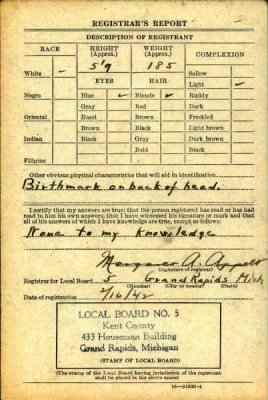 REGISTRAR'S REPORT
DESCRIPTION OF REGISTRANT
RACE HEIGHT (Approx.) WEIGHT (Approx.) COMPLEXION
5'9 185 Sallow
White Light
EYES HAIR Ruddy
Negro Blue Blonde Dark
Gray Red Freckled
Oriental Hazel Brown Light brown
Brown Black Dark brown
Indian Black Gray Black
Bald
Filipino
Other obvious physical characteristics that will aid in identification
Birthmark on back of head.
I certify that my answers are true; that the person registered has read or has had
read to him his own answers; that I have witnessed his signature or mark and that
all of his answers of which I have knowledge are true, except as follows:
None to my knowledge
Margaret A. Appelt
(Signature of registrar)
Registrar for Local Board 5 Grand Rapids Mich
(Number) (City or county)
Date of registration 2/16/42
LOCAL BOARD NO. 5
Kent County
433 Houseman Building
Grand Rapids, Michigan
(STAMP OF LOCAL BOARD)
(The stamp of the Local Board having jurisdiction of the registrant
shall be placed in the above space)